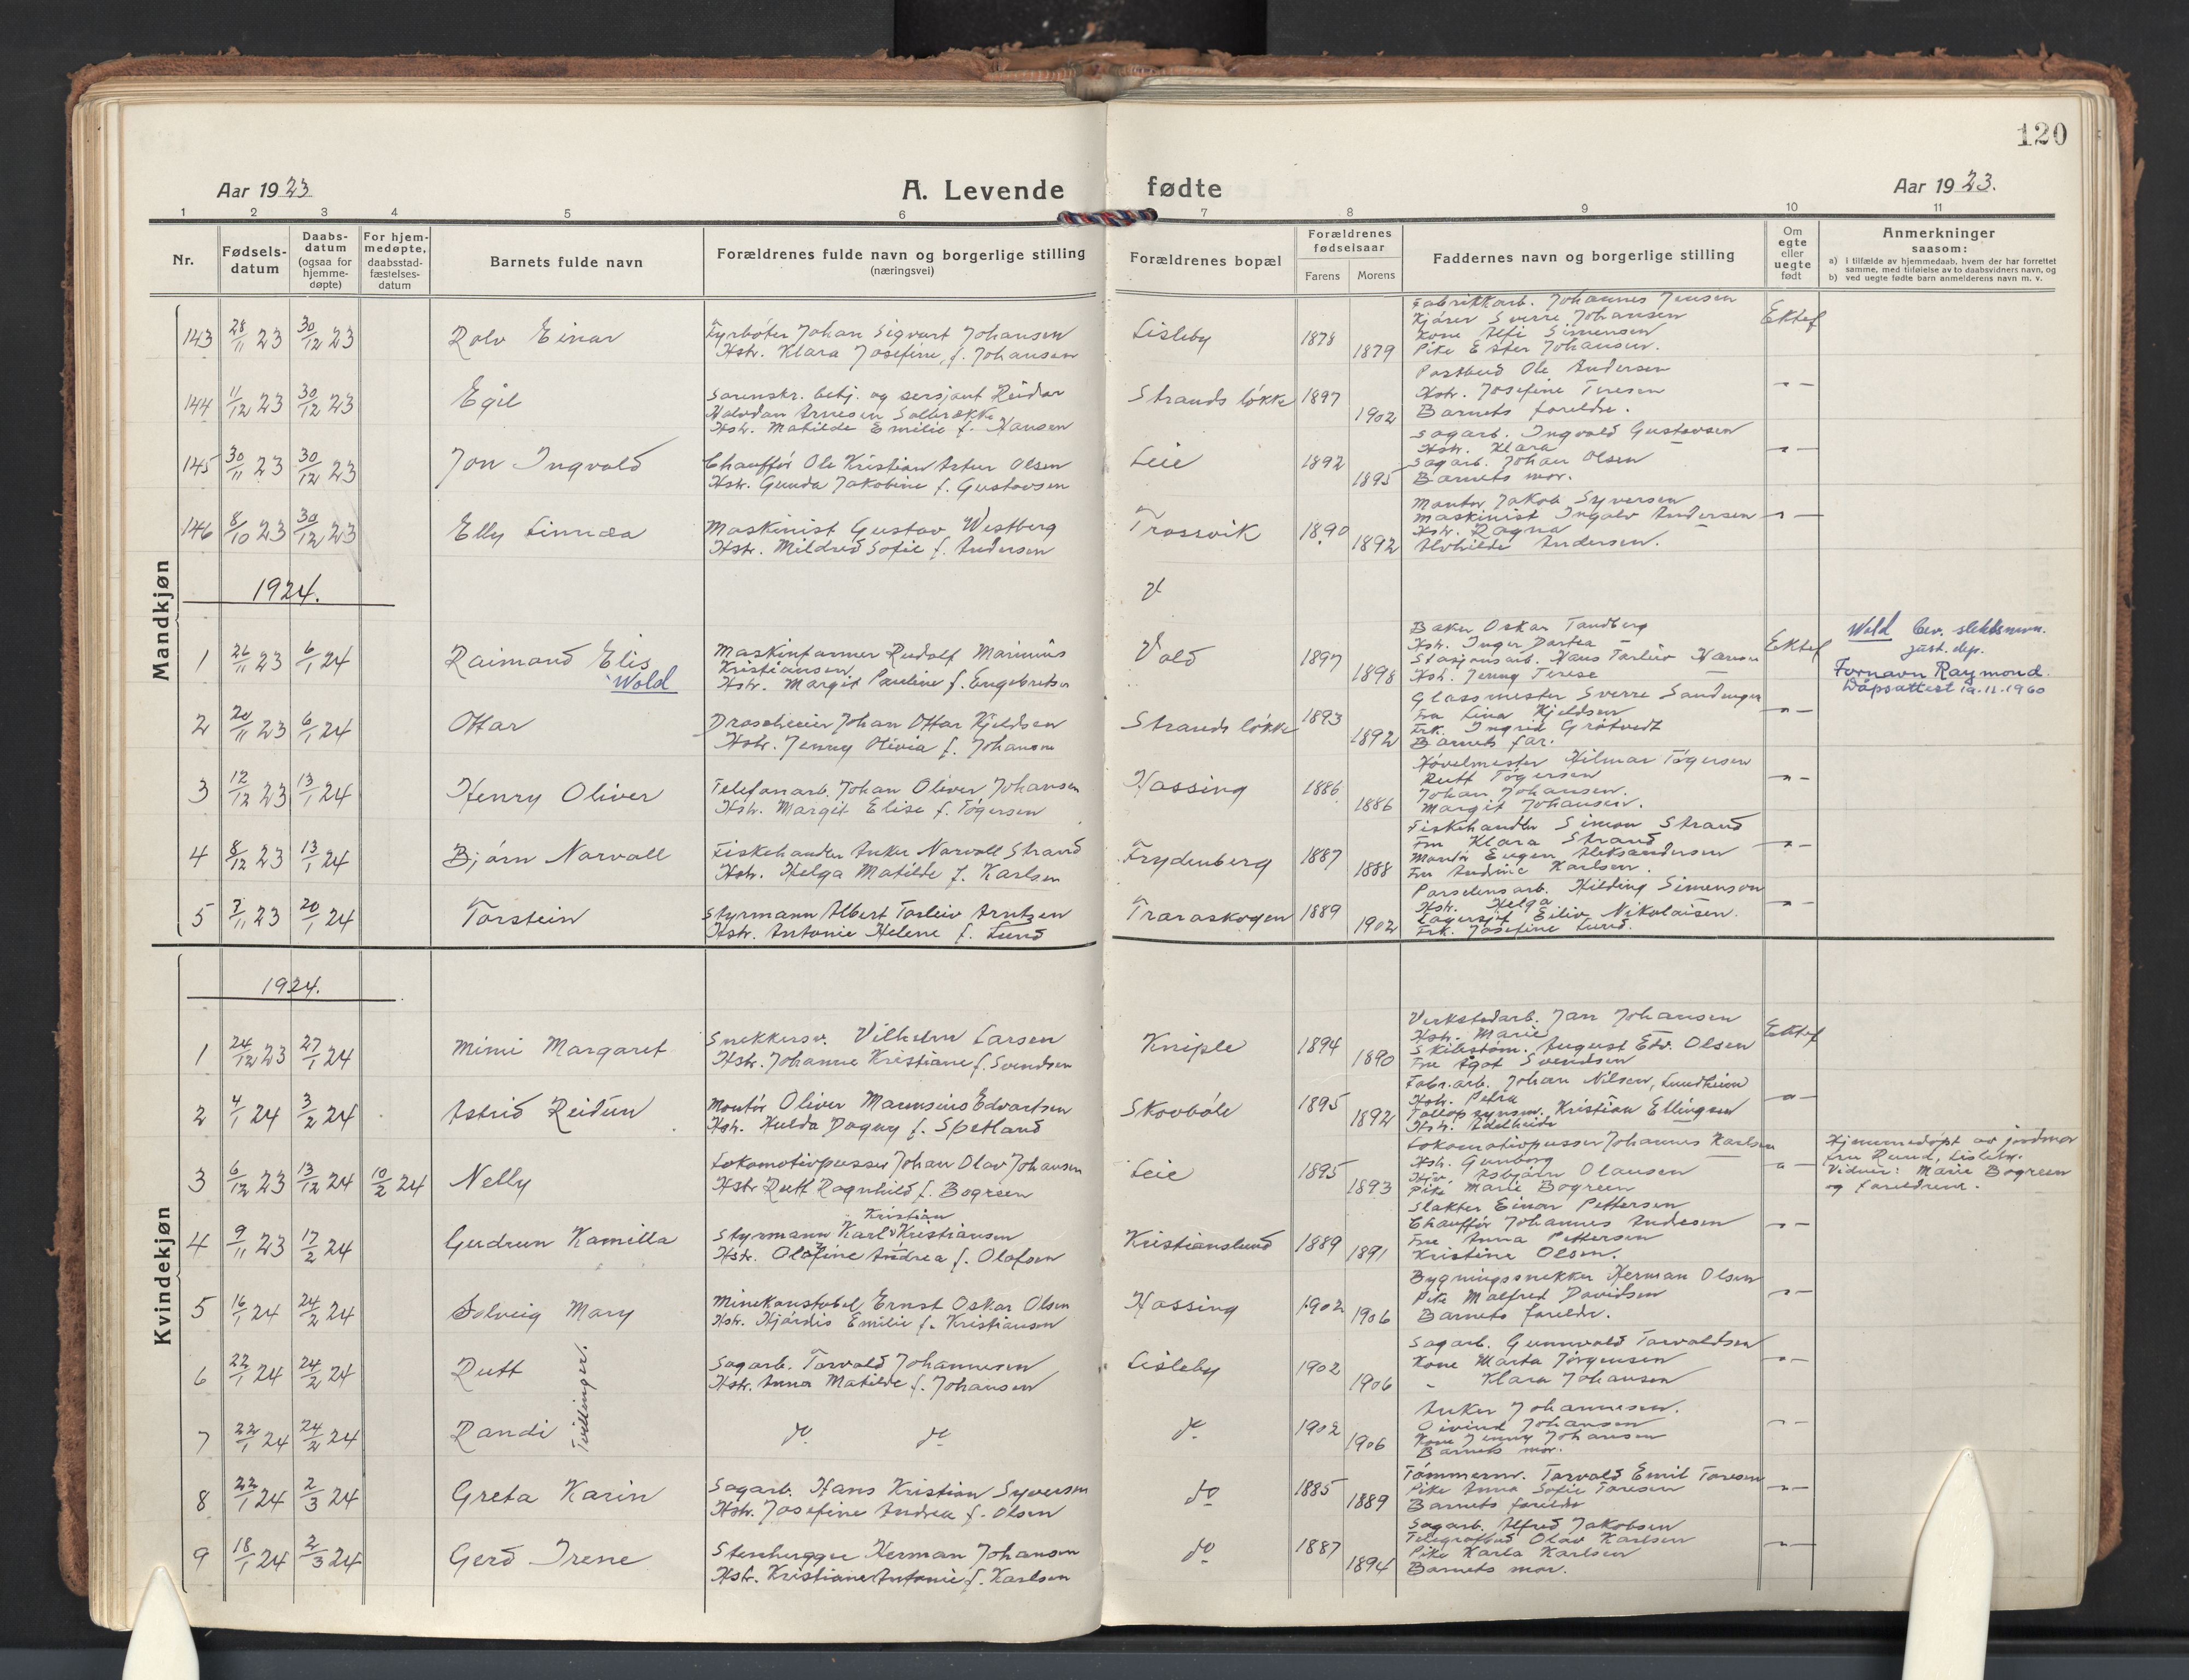 120
Aar 1923
A. Levende fødte
Aar 1923.
1 2 3 4 5 6 7 8 9 10 11
Nr.
Fødsels-
datum
Daabs-
datum
(ogsaa for
hjemme-
døpte)
For hjem-
medøpte,
daabsstad-
fæstelses-
datum
Barnets fulde navn
Forældrenes fulde navn og borgerlige stilling
(næringsvei)
Forældrenes bopæl
Forældrenes
fødselsaar
Farens Morens
Faddernes navn og borgerlige stilling
Om
egte
eller
uegte
født
Anmerkninger
saasom:
a) i tilfælde av hjemmedaab, hvem der har forrettet
samme, med tilføielse av to daabsvidners navn, og
b) ved uegte fødte barn anmelderens navn m. v.
Mandkjøn
143 28/11 23 30/12 23 Rolv Einar
Fyrbøter Johan Sigvart Johansen
Hstr. Klara Josefine, f. Johansen
Lisleby 1878 1879
Fabrikkarb. Johannes Jensen
Kjører Sverre Johansen
Kone Alfi Simensen
Pike Ester Johansen.
Ektef
144 11/12 23 30/12 23 Egil
Sarenskr. betj. og sersjant Reidar
Halvdan Arnesen Solbrække
Hstr. Matilde Emilie f. Hansen
Strands løkke 1897 1902
Postbud Ole Andersen
Hstr. Josefine Tresen
Barnets foreldre.
-"-
145 30/11 23 30/12 23 Jon Ingvald
Chauffør Ole Kristian Artur Olsen
Hstr. Gunda Jakobine f. Gustavsen
Leie 1892 1895
Sagarb. Ingvald Gustavsen
Hstr. Klara –
Sagarb. Johan Olsen
Barnets mor.
-"-
146 8/10 23 30/12 23 Elly Linnæa
Maskinist Gustav Westberg
Hstr. Mildred Sofie f. Andersen
Trosvik 1890 1892
Montør Jakob Syversen
Maskinist Ingolv Andersen
Hstr. Ragna –
Alvhilde Andersen.
-"-
1924.
1 26/11 23 6/1 24 Raimond Elis
Wold
Maskinformer Rudolf Marinius
Kristiansen
Hstr. Margit Pauline f. Engebretsen
Vold 1897 1898
Baker Oskar Tandberg
Hstr. Inger Dortea –
Stasjonsarb. Hans Torleiv Hansen
Hstr. Jenny Terese –
Ektef
Wold bev. slektsnavn.
just. dep.
Fornavn Raymond.
Dåpsattest 19.11.1960
2 20/11 23 6/1 24 Ottar
Droscheeier Johan Ottar Kjeldsen
Hstr. Jenny Olivia f. Johansen
Strands løkke 1893 1892
Glassmester Sverre Sandunger
Fru Lina Kjeldsen
Frk. Ingrid Grøtvedt
Barnets far.
-"-
3 12/12 23 13/1 24 Henry Oliver
Telefonarb. Johan Oliver Johansen
Hstr. Margit Elise f. Tøgersen
Hassing 1886 1886
Høvelmester Hilmar Tøgersen
Rutt Tøgersen
Johan Johansen.
Margit Johansen.
-"-
4 8/12 23 13/1 24 Bjørn Norvall
Fiskehandler Anker Norvall Strand
Hstr. Helga Matilde f. Karlsen
Frydenberg 1887 1888
Fiskehandler Simon Strand
Fru Klara Strand
Montør Eugen Aleksandersen
Fru Andine Karlsen.
-"-
5 7/11 23 20/1 24 Torstein
Styrmann Albert Torleiv Arntzen
Hstr. Antonie Helene f. Lund
Traraskogen 1889 1902
Porselensarb. Hilding Simenson
Hstr. Helga –
Lagersjef Eiliv Nikolaisen.
Frk. Josefine Lund.
-"-
Kvindekjøn
1924.
1 24/12 23 27/1 24 Mimi Margaret
Snekkersv. Vilhelm Larsen
Hstr. Johanne Kristiane f. Svendsen
Kniple 1894 1890
Verkstedarb. Jan Johansen
Hstr. Marie –
Skibstøm. August Edv. Olsen
Fru Agot Svendsen
Ektef
2 4/1 24 3/2 24 Astrid Reidun
Montør Oliver Marensius Edvartsen
Hstr. Hulda Dagny f. Spetland
Skovbøle 1895 1892
Fabr.arb. Johan Nilsen, Lundheim
Hstr. Petra –
Kristian Ellingsen
Hstr. Adelheide –
-"-
3 6/12 23 13/12 24 10/2 24 Nelly
Lokomotivpusser Johan Olav Johansen
Hstr. Rutt Ragnhild f. Bogreen
Leie 1895 1893
Lokomotivpusser Johannes Karlsen
Hstr. Gunborg –
Asbjørn Olausen
Pike Marie Bogreen
-"-
Hjemmedøpt av jordmor
fru Rund, Lisleby.
Vidner: Marie Bogreen
og foreldrene.
4 9/11 23 17/2 24 Gudrun Kamilla
Kristian
Styrmann Karl Kristiansen
Hstr. Olafine Andrea f. Olafsen
Kristianslund 1889 1891
Slakter Einar Pettersen
Chauffør Johannes Andresen
Fru Anna Pettersen
Kristine Olsen.
-"-
5 16/1 24 24/2 24 Solveig Mary
Minekonstabel Ernst Oskar Olsen
Hstr. Hjørdis Emilie f. Kristiansen
Hassing 1902 1906
Bygningssnekker Herman Olsen
Pike Malfred Davidsen
Barnets foreldre.
-"-
6 22/1 24 24/2 24 Rutt
Tvillinger.
Sagarb. Torvald Johannesen
Hstr. Anna Matilde f. Johansen
Lisleby 1902 1906
Sagarb. Gunnvald Torvaldsen
Kone Marta Jørgensen
- Klara Johansen
-"-
7 22/1 24 24/2 24 Randi
do do
do 1902 1906
Anker Johannesen.
Oivind Johansen
Kone Jenny Johansen
Barnets mor.
-"-
8 22/1 24 2/3 24 Greta Karin
Sagarb. Hans Kristian Syversen
Hstr. Josefine Andrea f. Olsen
do 1885 1889
Tømmerm. Torvald Emil Toresen
Pike Anna Sofie Toresen
Barnets foreldre
-"-
9 18/1 24 2/3 24 Gerd Irene
Stenhugger Herman Johansen
Hstr. Kristiane Antonie f. Karlsen
do 1887 1894
Sagarb. Alfred Jakobsen
Telegrafbud Olav Karlsen
Pike Karla Karlsen
Barnets mor.
-"-